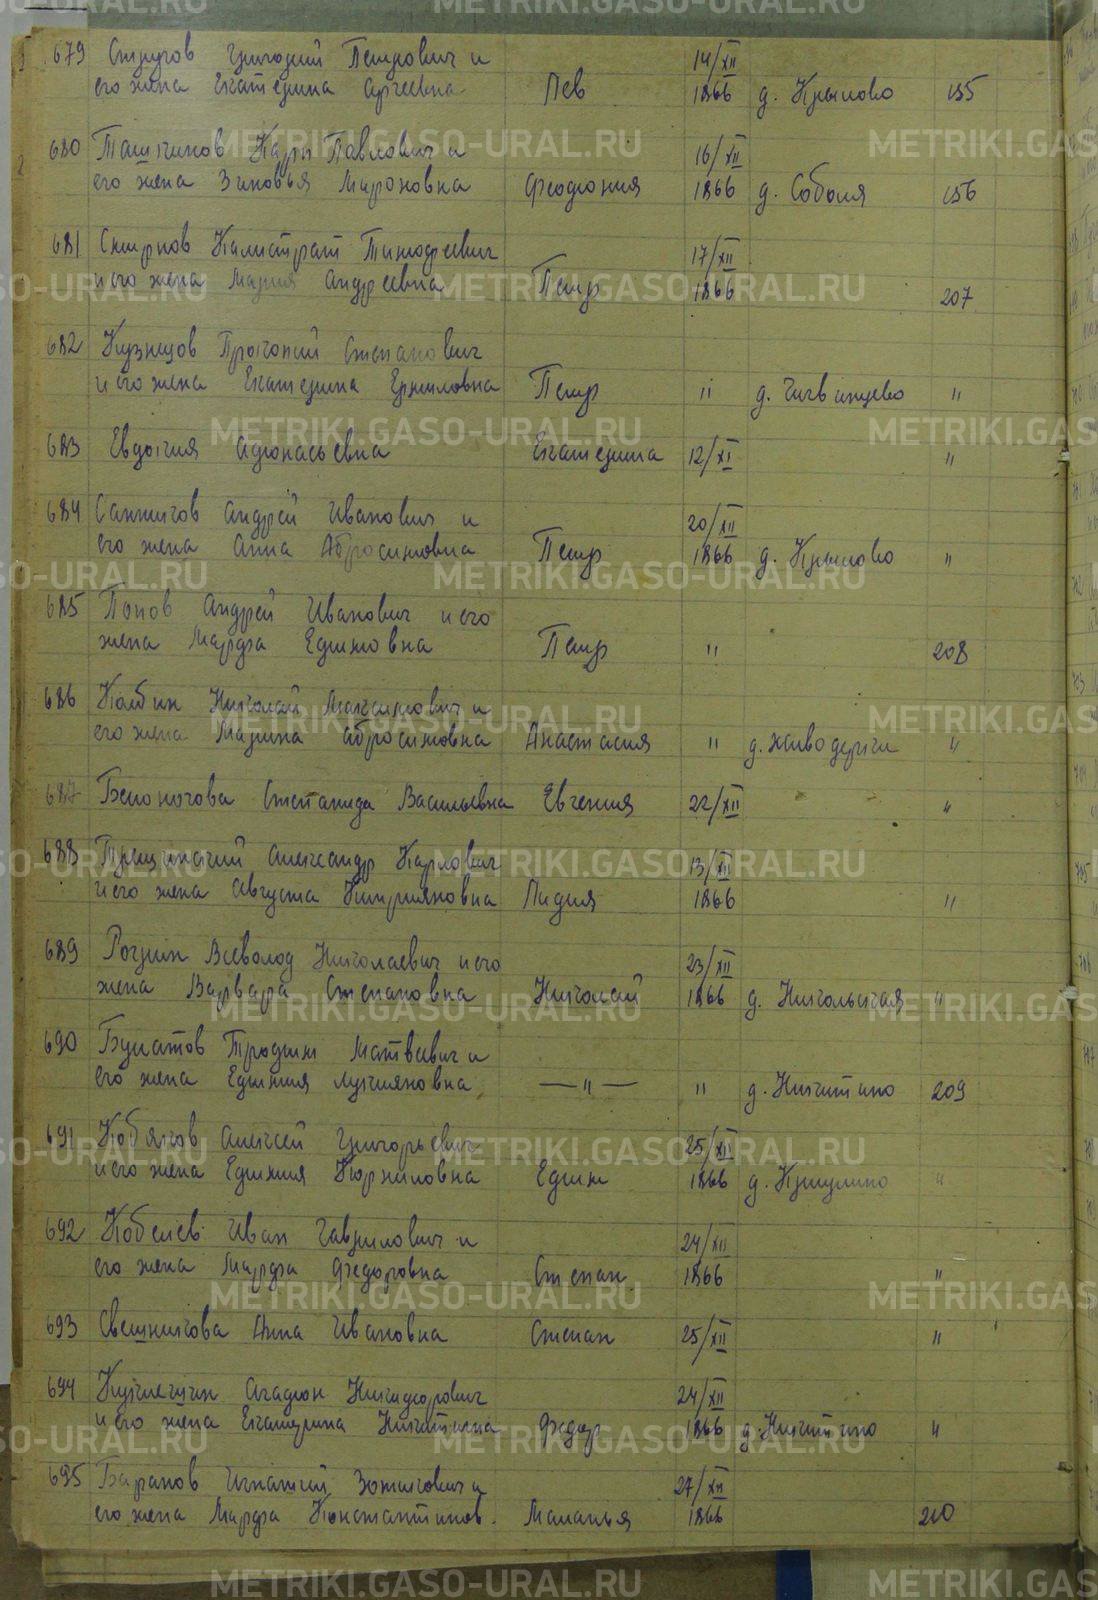 679 Стругов Григорий Петрович и 14/XII
его жена Екатерина Сергеевна Лев 1866 д. Крылово 155
680 Ташкинов Карп Павлович и 16/XII
его жена Зиновья Мироновна Феофония 1866 д. Соболя 156
681 Смирнов Калистрат Тимофеевич 17/XII
и его жена Мария Андреевна Петр 1866 207
682 Кузнецов Прокопий Степанович
и его жена Екатерина Ермиловна Петр " "
683 Евдокия Афонасьевна Екатерина 12/XI "
684 Санников Андрей Иванович и 20/XII
его жена Анна Абросимовна Петр 1866 д. Крылово "
685 Попов Андрей Иванович и его
жена Марфа Ефимовна Петр " 208
686 Колбин Николай Максимович и
его жена Марина Абросимовна Анастасия " д. Живодерки "
687 Белоногова Степанида Васильевна Евгения 22/XII "
688 Александр Карлович 13/XII
и его жена Августа Киприяновна Лидия 1866 "
689 Рогрин Всеволод Николаевич и его 23/XII
жена Варвара Степановна Николай 1866 д. Никольская "
690 Булатов Трофим Матвеевич и
его жена Ефимия Лукияновна — " — " д. Никитино 209
691 Кобяков Алексей Григорьевич 25/XII
и его жена Ефимия Корниловна Ефим 1866 д. Криулино "
692 Кобелев Иван Гаврилович и 24/XII
его жена Марфа Федоровна Степан 1866 "
693 Свешникова Анна Ивановна Степан 25/XII "
694 Агафон Никифорович 24/XII
и его жена Екатерина Никитична Федор 1866 д. Никитино "
695 Баранов Игнатий Зотикович и 27/XII
его жена Марфа Константинов. Маланья 1866 210
METRIKI.GASO-URAL.RU